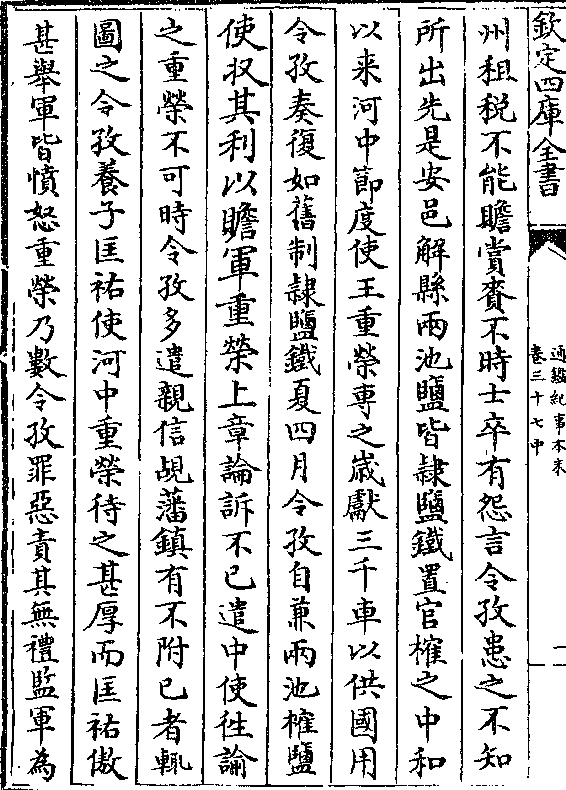 欽定四庫全書
通鑑紀事本末
卷三十七中
州租税不能贍賞賚不時士卒有怨言令孜患之不知
所出先是安邑解縣兩池鹽皆隸鹽鐵置官榷之中和
以来河中節度使王重榮專之歲獻三千車以供國用
令孜奏復如舊制隸鹽鐵夏四月令孜自兼兩池榷鹽
使收其利以贍軍重榮上章論訴不已遣中使徃諭
之重榮不可時令孜多遣親信覘藩鎮有不附已者輒
圖之令孜養子匡祐使河中重榮待之甚厚而匡祐傲
甚舉軍皆憤怒重榮乃數令孜罪惡責其無禮監軍為